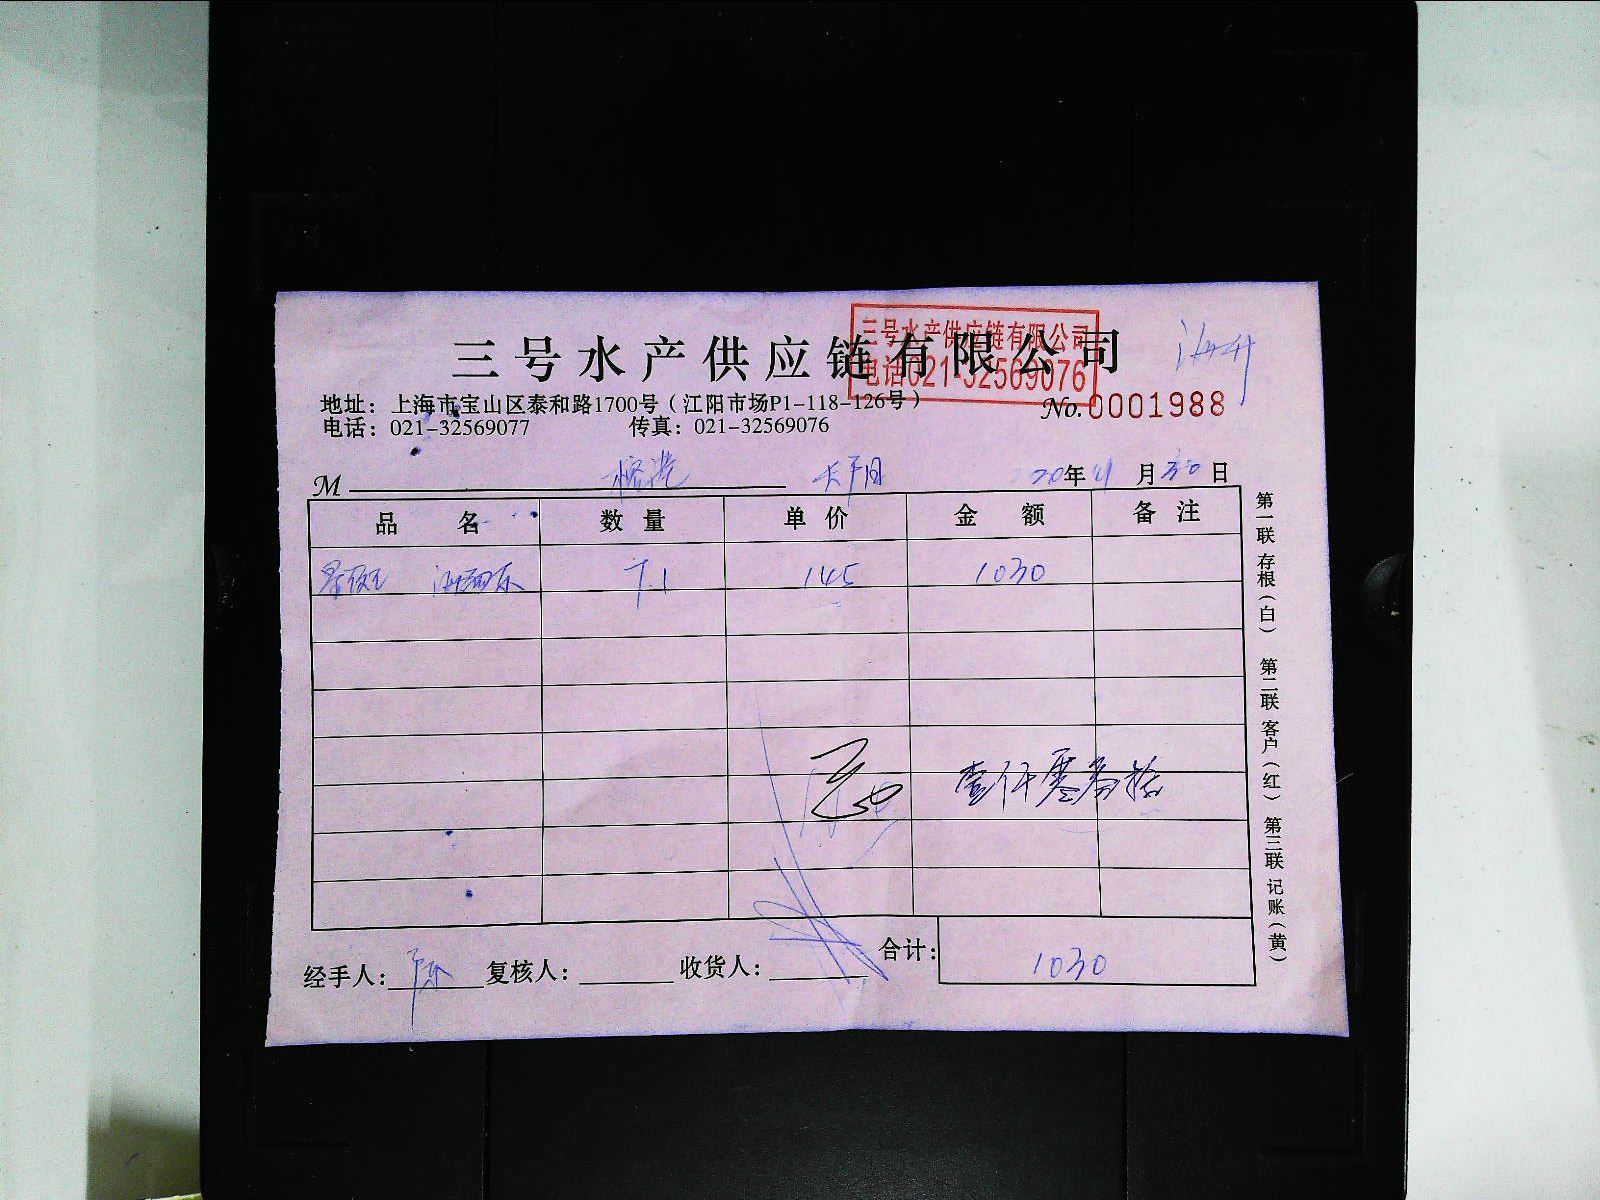 三号水产供应链有限公司
三号水产供应链有限公司
电话021-32569076
地址：上海市宝山区泰和路1700号（江阳市场P1-118-126号）
No.0001988
电话：021-32569077 传真：021-32569076
M 榕港 长阳 20年 月30日
品名 数量 单价 金额 备注
7.1 145 1030
壹仟零叁拾
经手人： 复核人： 收货人： 合计：1030
第一联 存根（白） 第二联 客户（红） 第三联 记账（黄）